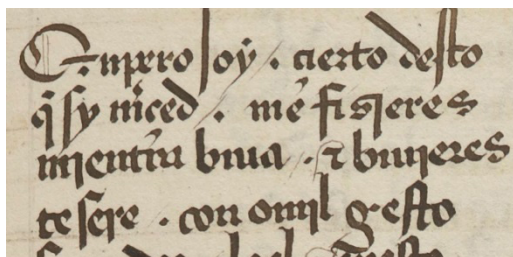 Enpero soy . cierto desto
q̃ sy m̃ced . me fisieres
mientra biua . ⁊ biuieres
te sere . con omil gesto